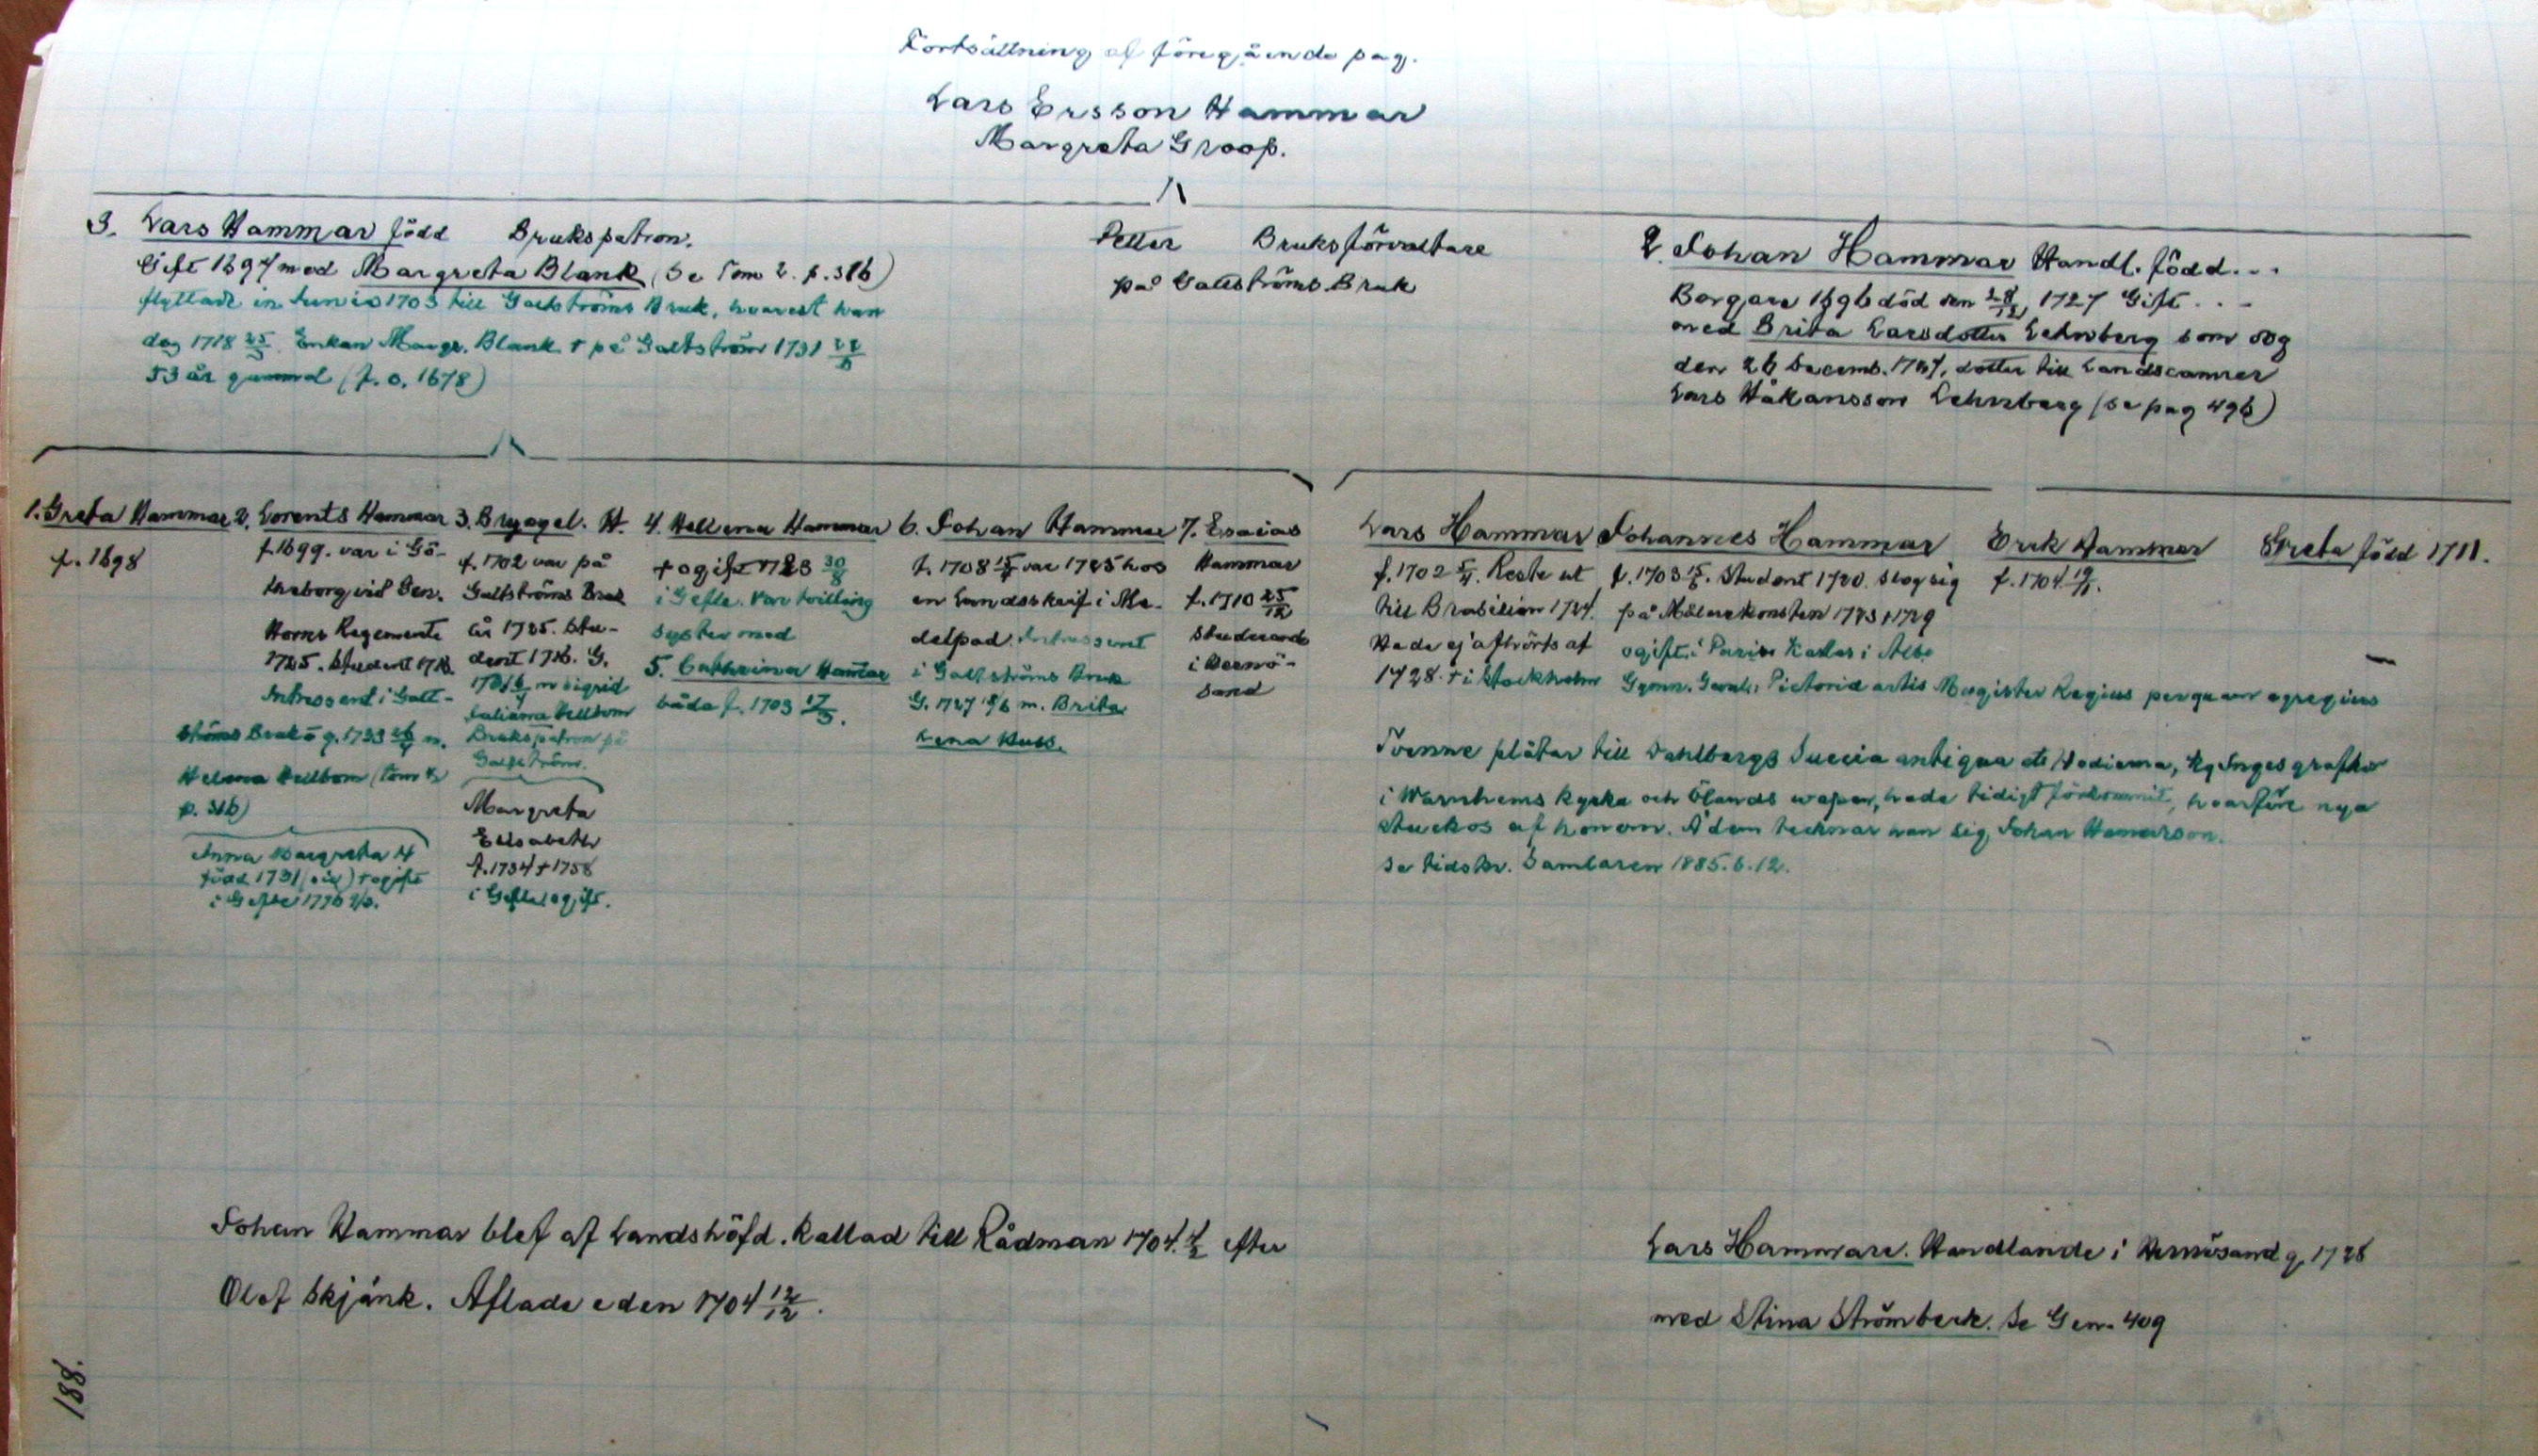 Fortsättning af föregående pag.
Lars Ersson Hammar
Margreta Groop.
3. Lars Hammar född Brukspatron.
Gift 1697 med Margreta Blank (Se Tom 2. p. 316)
flyttade in Junio 1703 till Galtströms Bruk, hvarest han
dog 1718 25/3. Enkan Margr. Blank † på Galtström 1731
53 år gammal (f. o. 1678)
Petter Bruksförvaltare
på Galtströms Bruk
2. Johan Hammar Handl. född...
Borgare 1696 död den 28/12 1727 Gift...
med Brita Larsdotter Lehnberg som dog
den 26 Decemb. dotter till Landscamrer
Lars Håkansson Lehnberg (se pag 496)
1. Greta Hammar
f. 1698
2. Lorents Hammar
f 1699. var i Gö-
theborg vid Gen.
Horns Regemente
1725. Student
Intressent i Galt-
ströms Bruk g. 1733 m.
Helena Hellbom (Tom 2
p. 316)
Anna Margreta H
född 1731 (oä) † ogift
i Gefle 1776
3. Bryngel. H.
f. 1702 var på
Galtströms Bruk
år 1725. Stu-
dent 1716. G.
m Sigrid
Juliana Hellbom
Brukspatron på
Galtström.
Margreta
Elisabeth
f. 1734 † 1758
i Gefle, ogift.
4. Hellena Hammar
† ogift 1783 30/8
i Gefle. Var tvilling
syster med
5. Cathrina Hammar
båda f. 1703 17/3.
6. Johan Hammar
f. 1708 var 1725 hos
en Landsskrif i Me-
delpad. Intressent
i Galtströms Bruk
G. 1727 m. Brita
Lena Huss.
7. Esaias
Hammar
f. 1710 25/12
Studerande
i Hernö-
sand
Lars Hammar
f. 1702 5/4. Reste ut
till Brasilien 1724.
Hade ej afhörts af
1728. † i Stockholm
Johannes Hammar
f. 1703 15/6. Student 1720. Slog sig
på Målarekonsten 1723 † 1729
ogift i Paris. Kallas i Albo
Gymn. Geval: Pictoriæ artis Magister Regius perquam egregius
Erik Hammar
f. 1704
Greta född 1711.
Tvenne plåtar till Dahlbergs Suecia antiqua et Hodierna, Kg Inges grafkor
i Warnhems kyrka och Ölands wapen, hade tidigt förkommit, hvarföre nya
stuckos af honom. Å dem tecknar han sig Johan Hamarson.
Se tidskr. Samlaren 1885. 6. 12.
Johan Hammar blef af Landshöfd. kallad till Rådman 1704. 4/2 efter
Olof Skjänk. Aflade eden 1704 12/12.
Lars Hammare. Handlande i Hernösand g. 1728
med Stina Strömbeck. Se Gen. 409
188.